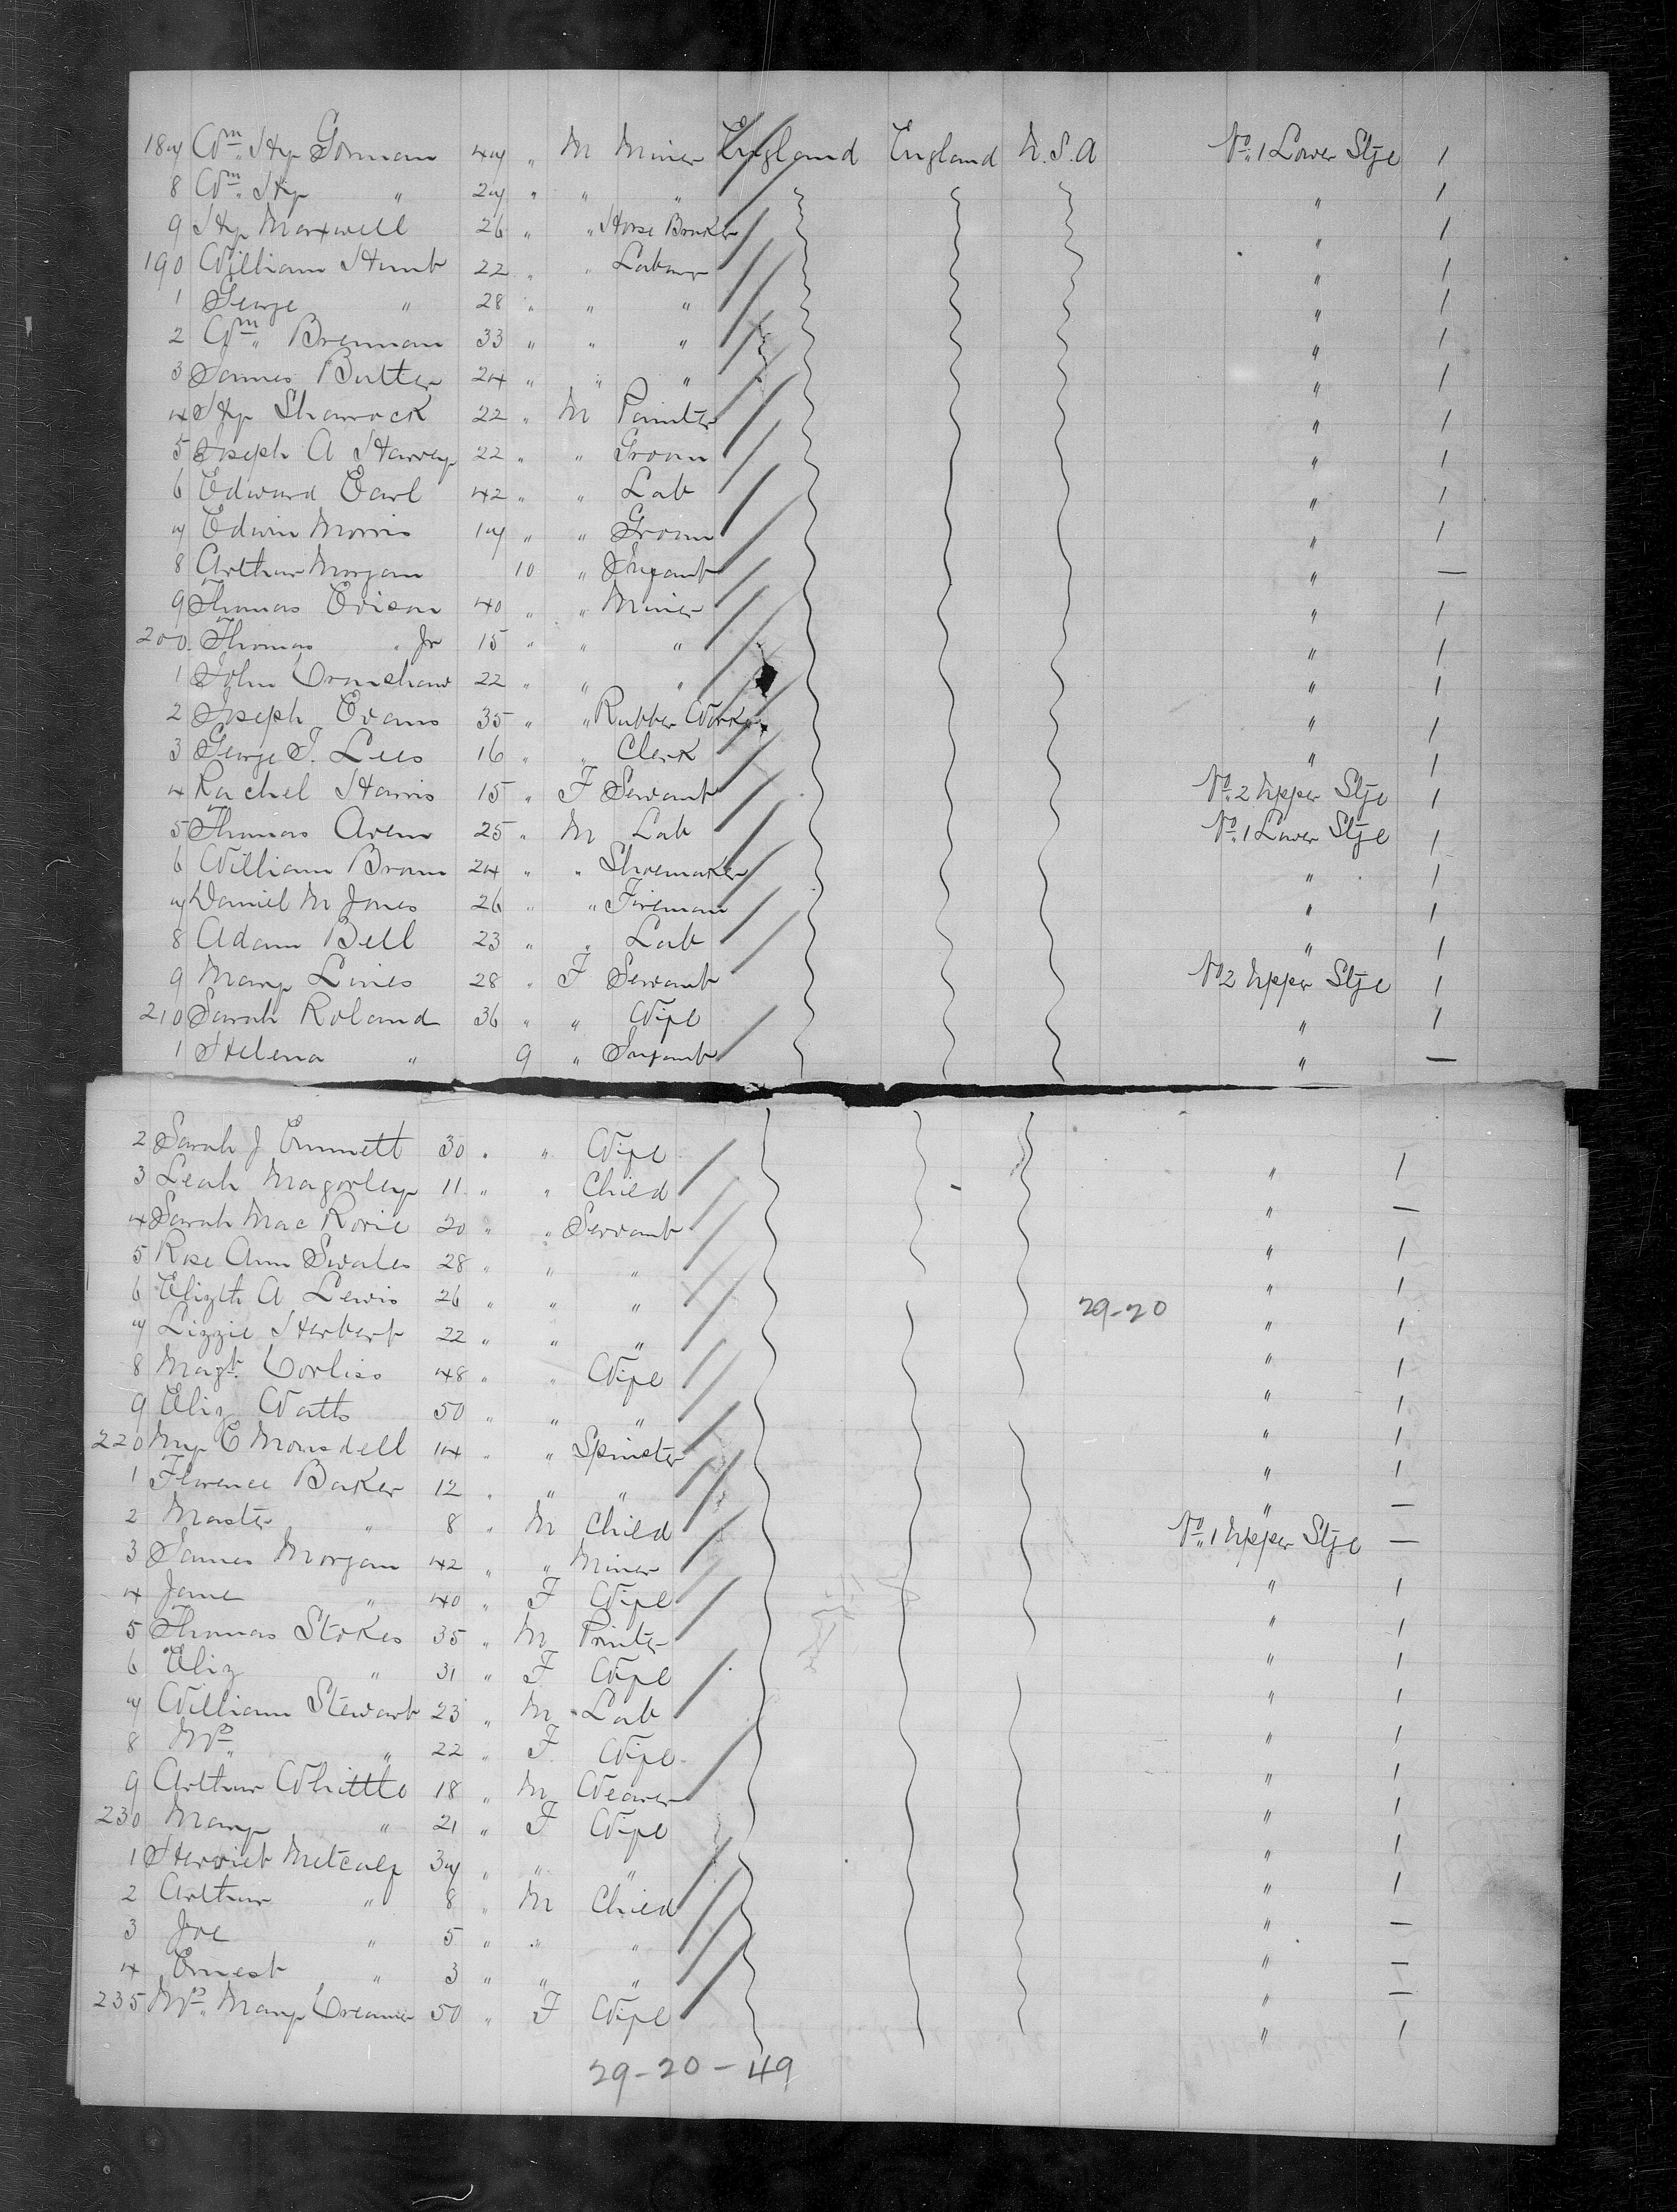 187 Wm Hy Gorman 47 " M Miner England England U.S.A No. 1 Lower Stge 1
8 Wm Hy " 27 " " " " 1
9 Hy Maxwell 26 " " Horse Breaker " 1
190 William Hunt 22 " " Labourer " 1
1 George " 28 " " " " 1
2 Wm Brennan 33 " " " " 1
3 James Butler 24 " " " " 1
4 Hy Sharrock 22 " M Painter " 1
5 Joseph A Harvey 22 " " Groom " 1
6 Edward Earl 42 " " Lab " 1
7 Edwin Morris 17 " " Groom " 1
8 Arthur Morgan 10 " Infant " —
9 Thomas Evison 40 " " Miner " 1
200 Thomas " Jr 15 " " " " 1
1 John Cranshaw 22 " " " " 1
2 Joseph Evans 35 " " Rubber Worker " 1
3 George T. Lees 16 " " Clerk " 1
4 Rachel Harris 15 " F Servant No. 2 Upper Stge 1
5 Thomas Aven 25 " M Lab No. 1 Lower Stge 1
6 William Brown 24 " " Shoemaker " 1
7 Daniel M Jones 26 " " Fireman " 1
8 Adam Bell 23 " " Lab " 1
9 Mary Lines 28 " F Servant No 2 Upper Stge 1
210 Sarah Roland 36 " " Wife " 1
1 Helena " 9 " Infant " —
2 Sarah J Emmett 30 " " Wife " 1
3 Leah Magorley 11 " " Child " —
4 Sarah Mac Rorie 20 " " Servant " 1
5 Rose Ann Swales 28 " " " " 1
6 Elizth A Lewis 26 " " " 29-20 " 1
7 Lizzie Herbert 22 " " " " 1
8 Magt. Corliss 48 " " Wife " 1
9 Eliz Watts 50 " " " " 1
220 My E Monsdell 14 " " Spinster " 1
1 Florence Baker 12 " " " " —
2 Master " 8 " M Child No. 1 Upper Stge —
3 James Morgan 42 " " Miner " 1
4 Jane " 40 " F Wife " 1
5 Thomas Stokes 35 " M Printer " 1
6 Eliz " 31 " F Wife " 1
7 William Stewart 23 " M Lab " 1
8 Mrs. " 22 " F Wife " 1
9 Arthur Whittle 18 " M Weaver " 1
230 Mary " 21 " F Wife " 1
1 Harriet Metcalf 37 " " " " 1
2 Arthur " 8 " M Child " —
3 Joe " 5 " " " " —
4 Ernest " 3 " " " " —
235 Mrs. Mary Creamer 50 " F Wife " 1
29-20-49